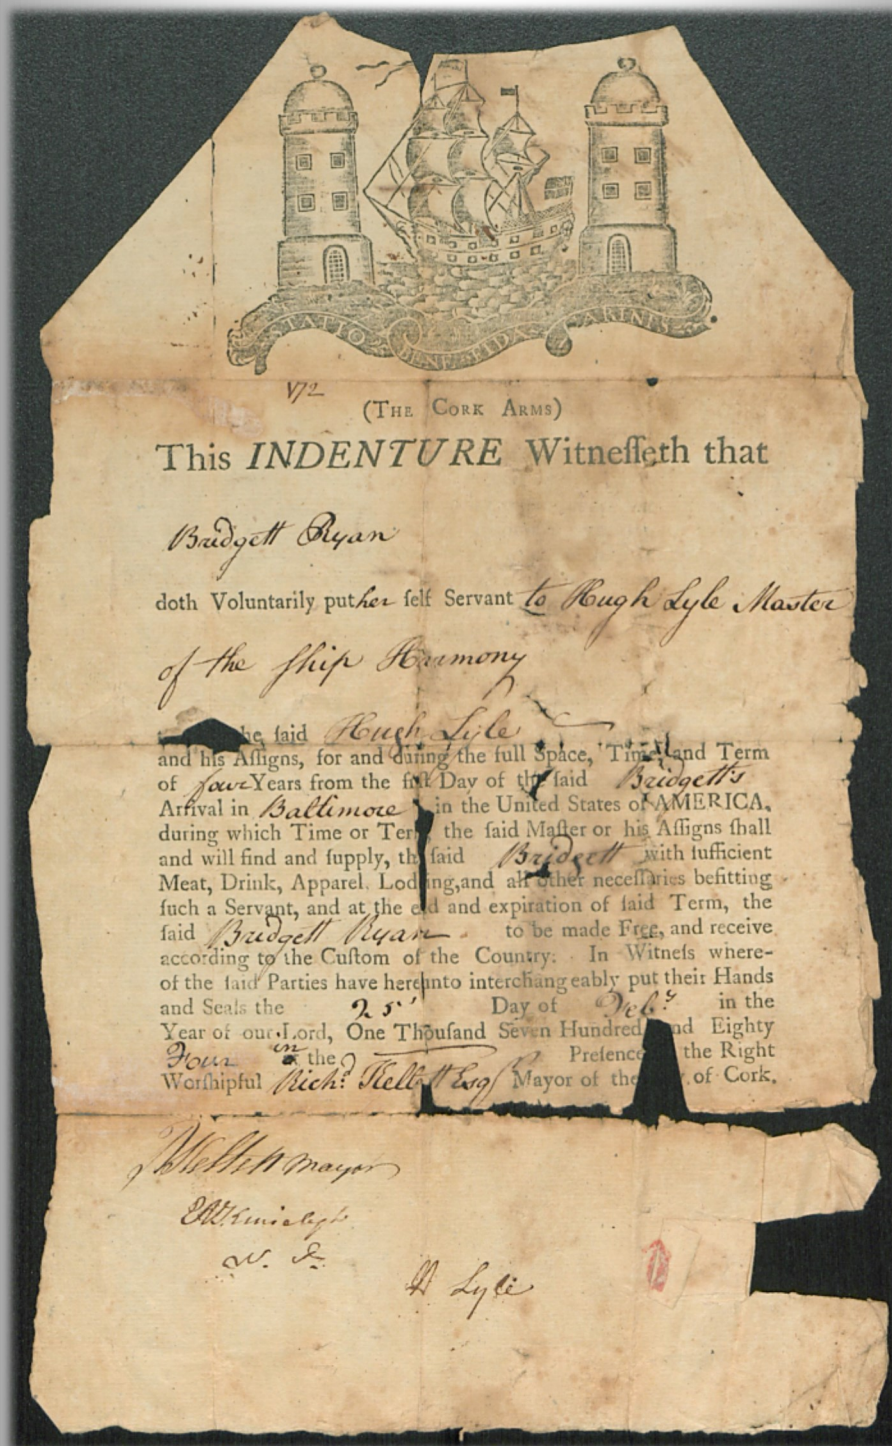 STATIO BENE FIDA CARINIS
172
(THE CORK ARMS)
This INDENTURE Witneſſeth that
Bridgett Ryan
doth Voluntarily put her ſelf Servant to Hugh Lyle Master
of the Ship Harmony
he ſaid Hugh Lyle
and his Aſſigns, for and during the full Space, Time, and Term
of four Years from the firſt Day of the ſaid Bridgett's
Arrival in Baltimore in the United States of AMERICA,
during which Time or Term the ſaid Maſter or his Aſſigns ſhall
and will find and ſupply, the ſaid Bridgett with ſufficient
Meat, Drink, Apparel. Lodging, and all other neceſſaries befitting
ſuch a Servant, and at the end and expiration of ſaid Term, the
ſaid Bridgett Ryan to be made Free, and receive
according to the Cuſtom of the Country. In Witneſs where-
of the ſaid Parties have hereunto interchangeably put their Hands
and Seals the 25 Day of Feb.y in the
Year of our Lord, One Thouſand Seven Hundred and Eighty
Four in the Preſence the Right
Worſhipful Rich.d Kellett Esq.r Mayor of the of Cork.
R Kellett mayor
H Lyle